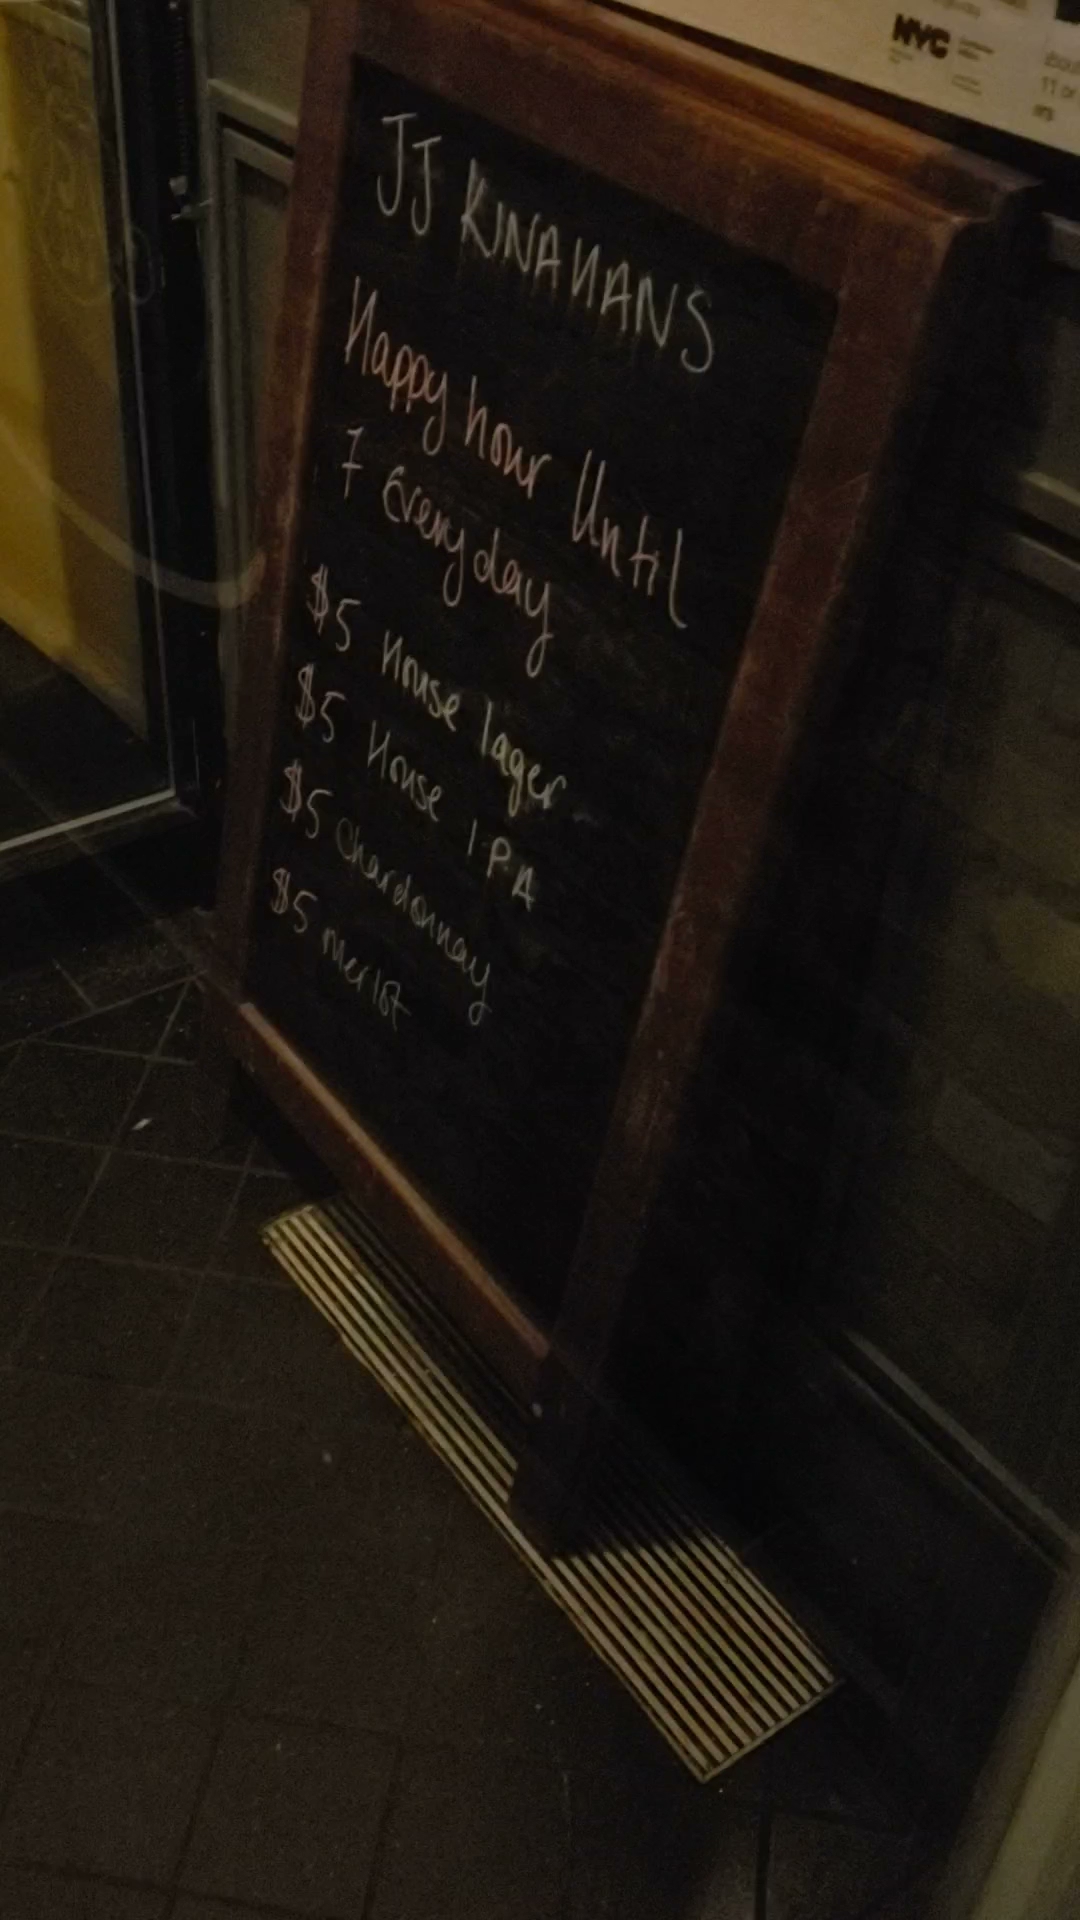 NYC
11 or
JJ KINAHANS
Happy hour Until
7 Everyday
$5 House lager
$5 House I.P.A
$5 Chardonnay
$5 merlot